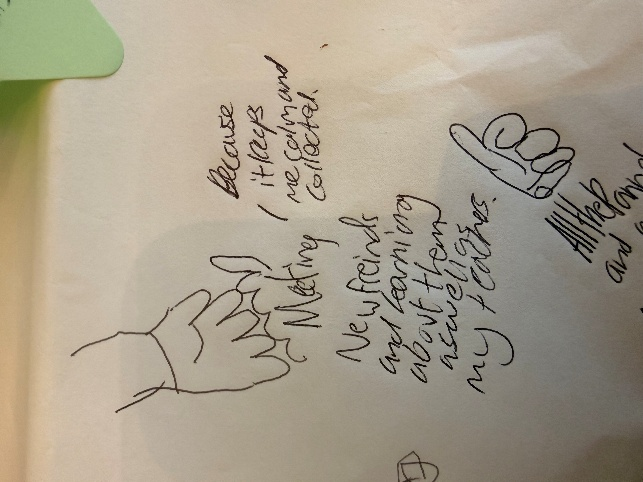 Because
it keys
me calm and
collected.
Meeting
New freinds
and learning
about them
aswell as
my teachers.
All the
and